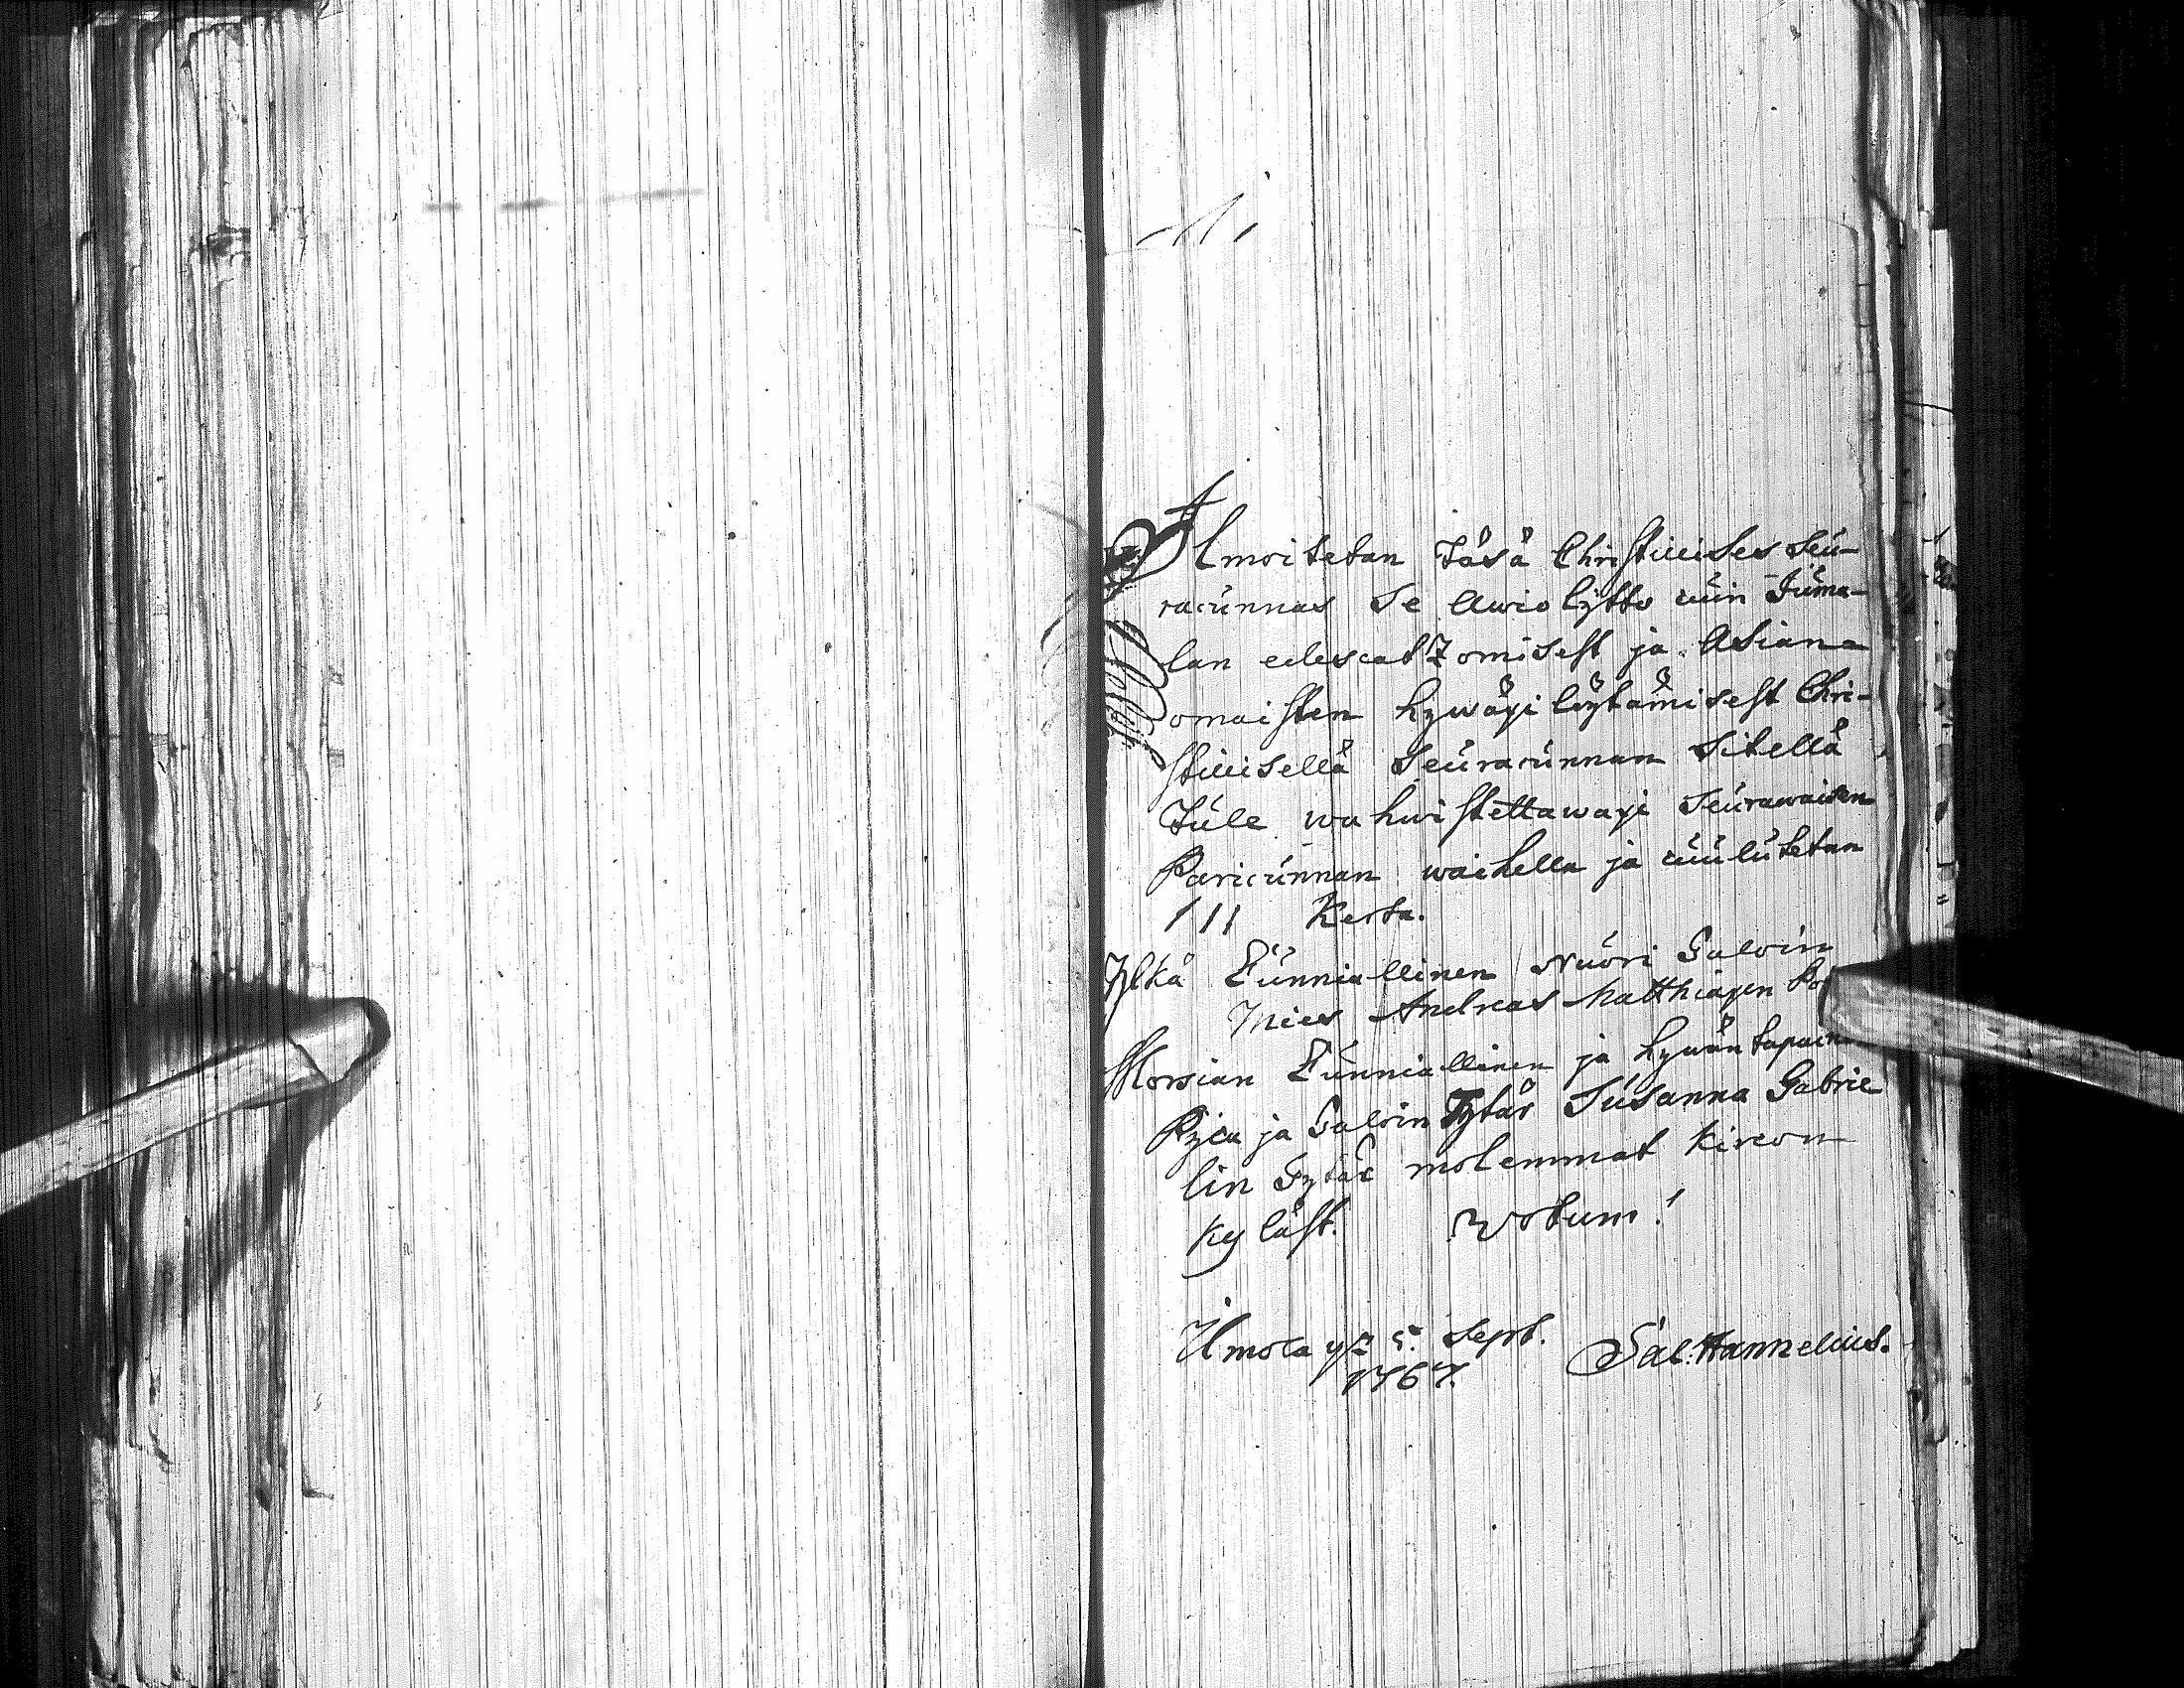 Ilmoitetan täsä Christillises Seu-
racunnas Se Awio lijtto cuin Juma-
lan edescatZomisest ja Asian-
omaisten hywäxi löytämisest Chri-
stillisellä Seuracunnan Sitellä
Tule wahwistettawaxi Seurawaisen
Paricunnan waihella ja cuulutetan
111 Kerta.
Yljkä Cunniallinen Nuori Taloin
Mies Andreas Matthiaxen
Morsian Cunniallinen ja hywäntapainen
Pijca ja Taloin Tytär Susanna Gabrie
lin Tytär molemmat Kircon
Kyläst. Votum!
Ilmola 5. Sept.
1767. Sal. Hannelius.